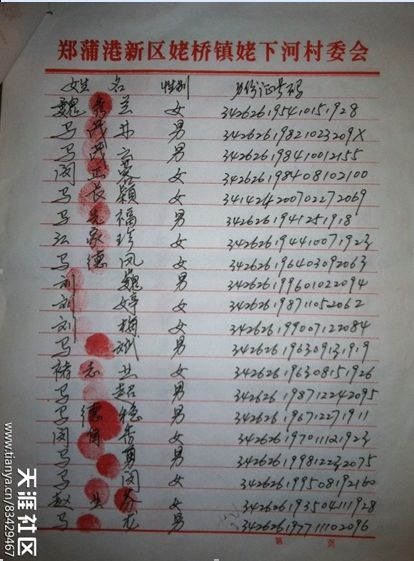 郑蒲港新区姥桥镇姥下河村委会
姓名 性别 身份证号码
魏 兰 女 342626195410151928
马 林 男 34262619821023209X
马 男 342626198410012155
闵 女 342626198408102100
马长颖 女 341424200702272069
马先福 男
江家珍 女 342626194410071923
马德凤 女 342626196403092063
刘巍 男 342626199601022094
刘婷 女 342626198711052062
刘梅 女 342626199007122084
马斌 男 342626196309131919
褚志 女 342626196308151926
马超 男 342626198712242095
马德稳 男 342626196712271911
闵 香 女 342626197011121923
马勇 男 342626199812232075
马闵 女 342626199508192160
赵 女 342626193504111928
马龙 男 342626197711102096
第 页
天涯社区
www.tianya.cn/83429467